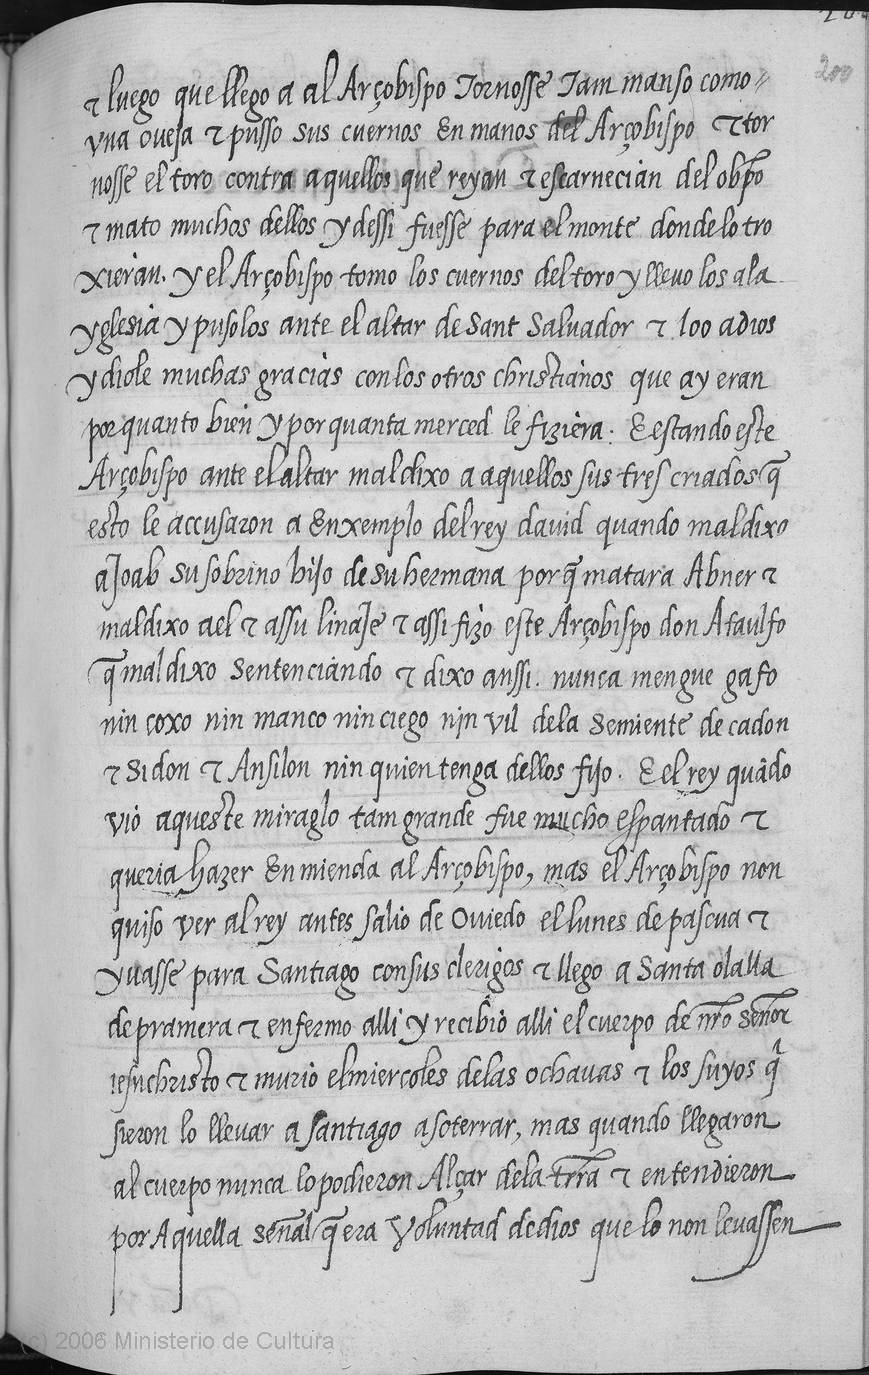 200
⁊ luego que llego a al Arçobispo Tornosse Tam manso como
vna oveja ⁊ pusso sus cuernos En manos del Arçobispo ⁊ tor
nosse el toro contra aquellos que reyan ⁊ escarnecian del obpo
⁊ mato muchos dellos y dessi fuesse para el monte donde lo tro
xieran. y el Arçobispo tomo los cuernos del toro y llevo los a la
yglesia y pusolos ante el altar de Sant Salvador ⁊ loo a dios
y diole muchas gracias con los otros christianos que ay eran
por quanto bien y por quanta merced le fiziera: E estando este
Arçobispo ante el altar maldixo a aquellos sus tres criados q̃
esto le accusaron a Enxemplo del rey david quando maldixo
a Joab su sobrino hijo de su hermana porq̃ matara Abner ⁊
maldixo a el ⁊ assu linaje ⁊ assi fizo este Arçobispo don Ataulfo
q̃ maldixo Sentenciando ⁊ dixo anssi. nunca mengue gafo
nin coxo nin manco nin ciego nin vil dela Semiente de cadon
⁊ Sidon ⁊ Ansilon nin quien tenga dellos fijo. E el rey quãdo
vio aqueste miraglo tam grande fue mucho espantado ⁊
queria hazer Enmienda al Arçobispo, mas el Arçobispo non
quiso ver al rey antes salio de Oviedo el lunes de pascua ⁊
yuasse para Santiago con sus clerigos ⁊ llego a Santa olalla
de pramera ⁊ enfermo alli y recibio alli el cuerpo de nr̃o señor
iesuchristo ⁊ murio el miercoles delas ochauas ⁊ los suyos q̃i
sieron lo llevar a santiago a soterrar, mas quando llegaron
al cuerpo nunca lo podieron Alçar dela trr̃a ⁊ entendieron
por Aquella señal q̃ era Voluntad de dios que lo non levassen
(c) 2006 Ministerio de Cultura